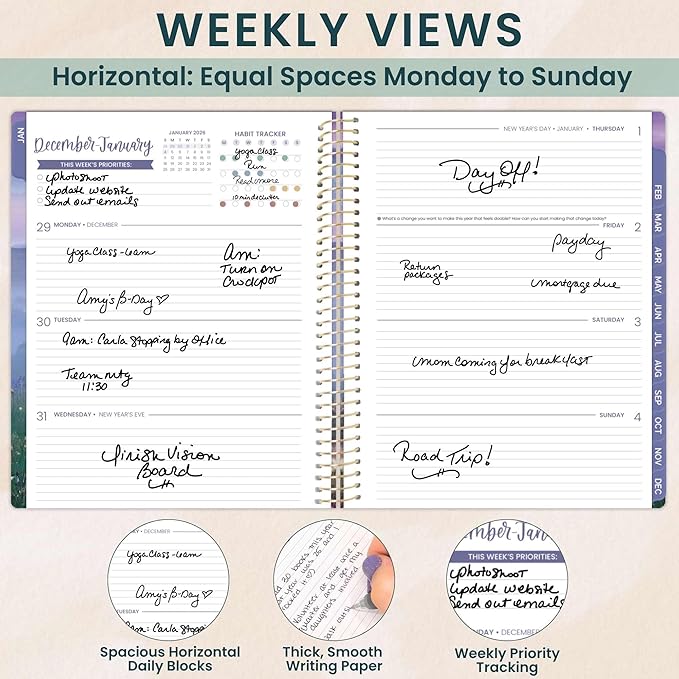 WEEKLY VIEWS
Horizontal: Equal Spaces Monday to Sunday
JAN
December-January
THIS WEEK'S PRIORITIES:
Photoshoot
update website
Send out emails
JANUARY 2026
S M T W T F S
HABIT TRACKER
M T W T F S S
Yoga Class
Run
Read more
10 min declutter
29 MONDAY • DECEMBER
Yoga Class - 6am
Am:
Turn on
Crockpot
Amy's B-Day ♡
30 TUESDAY
9am: Carla Stopping by Office
Team mtg
11:30
31 WEDNESDAY • NEW YEAR'S EVE
Finish Vision
Board
NEW YEAR'S DAY • JANUARY • THURSDAY 1
Day Off!
What's a change you want to make this year that feels doable? How can you start making that change today?
FRIDAY 2
payday
Return
packages
mortgage due
SATURDAY 3
mom coming for breakfast
SUNDAY 4
Road Trip!
FEB
MAR
APR
MAY
JUN
JUL
AUG
SEP
OCT
NOV
DEC
DAY • DECEMBER
Yoga Class - 6am
Amy's B-Day ♡
TUESDAY
am: Carla Stopp
d 30 books this year
year was 25 and I
Volunteer at least once a
quarter and get my
daughters involved
mber-Jan
THIS WEEK'S PRIORITIES:
Photoshoot
update website
Send out emails
DAY • DECEMBER
Spacious Horizontal
Daily Blocks
Thick, Smooth
Writing Paper
Weekly Priority
Tracking